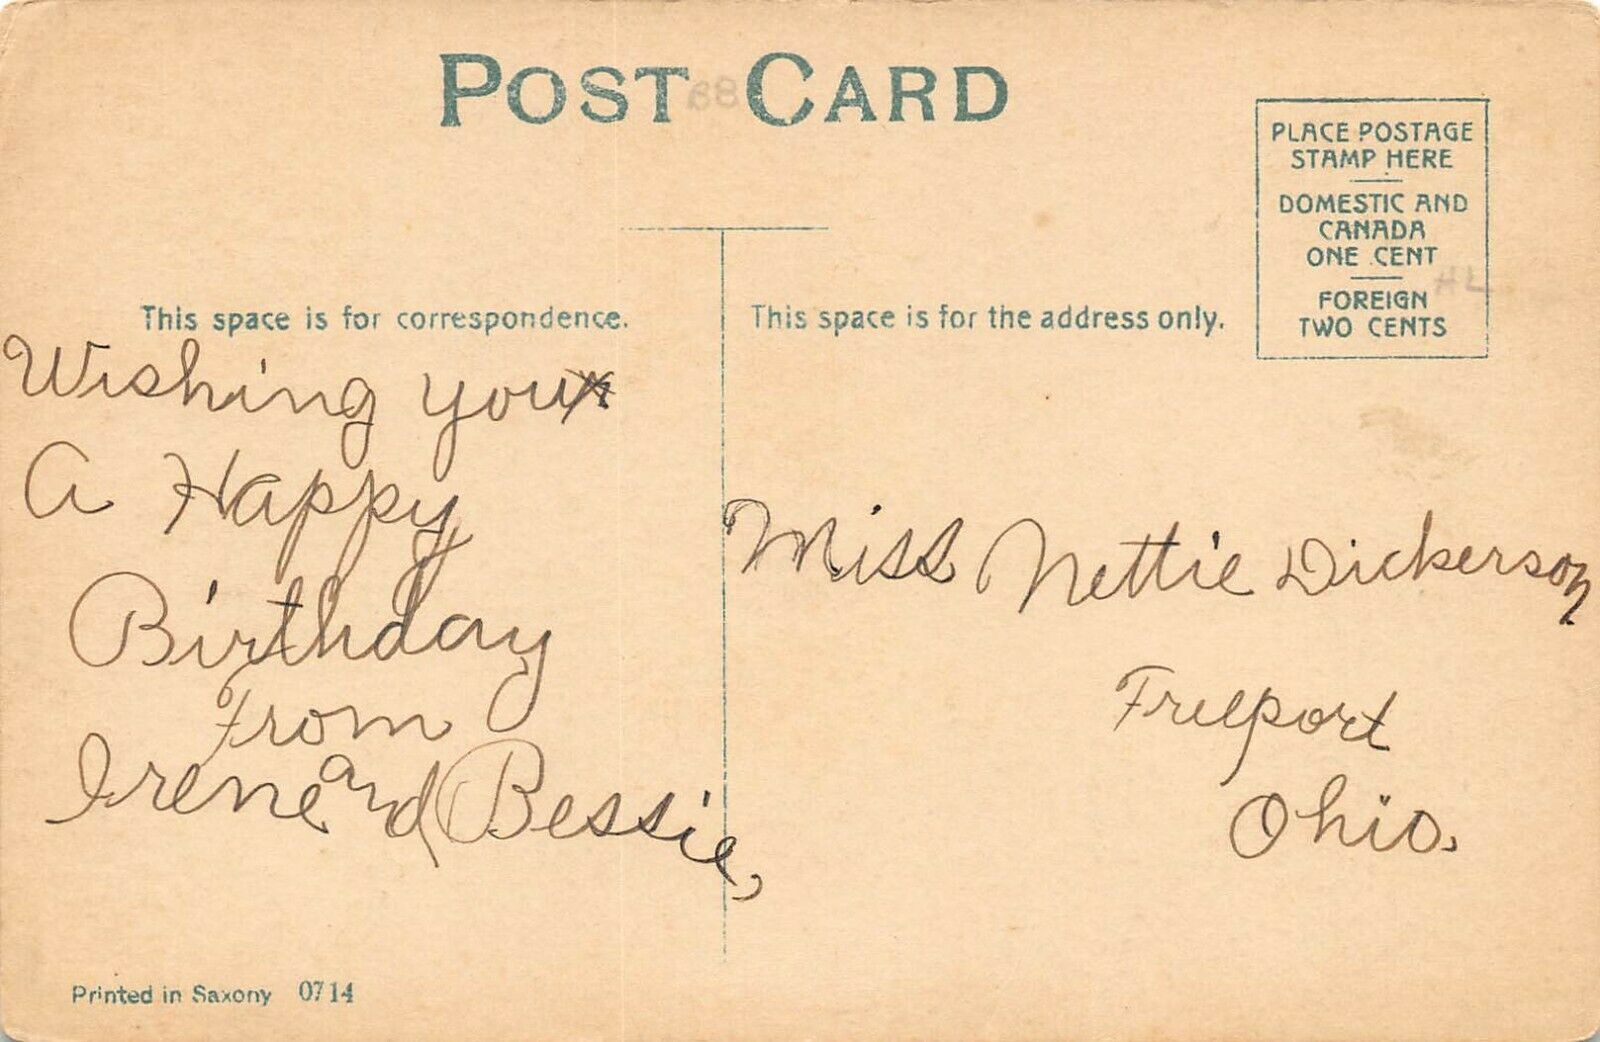 POST CARD
PLACE POSTAGE
STAMP HERE
DOMESTIC AND
CANADA
ONE CENT
FOREIGN
TWO CENTS
This space is for correspondence.
This space is for the address only.
Wishing you
A Happy
Birthday
From
Irene and Bessie,
Miss Nettie Dickerson
Freeport
Ohio.
Printed in Saxony 0714